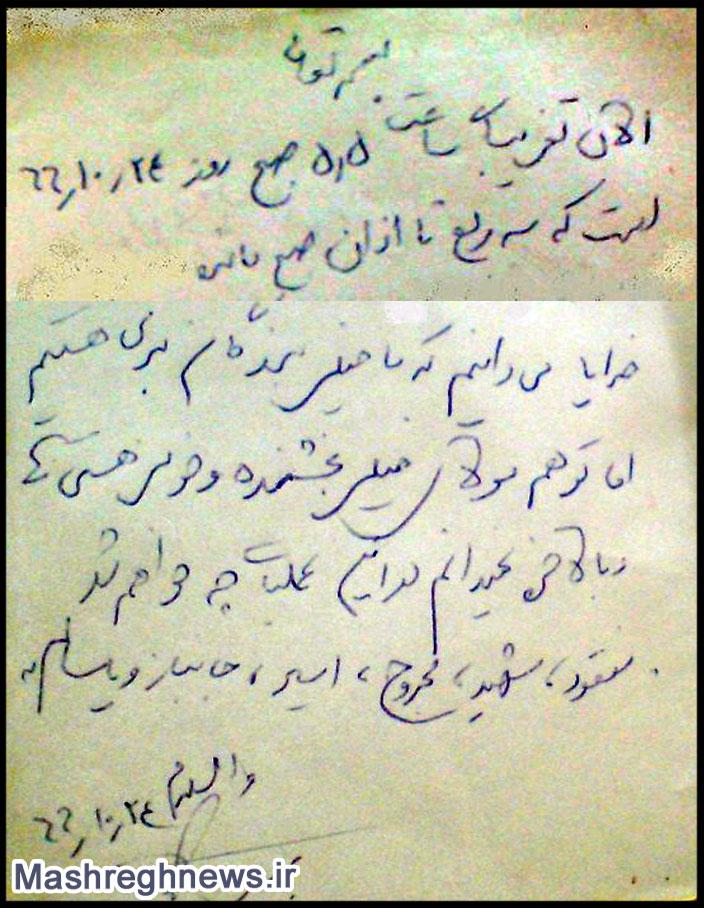 بسمه تعالی
الان تقریباً ساعت ۵٫۵ صبح روز ۶۶٫۱۰٫۲۴
است که سه ربع تا اذان صبح مانده
خدایا می دانیم که ما خیلی بنده های بدی هستیم
اما تو هم مولای خیلی بخشنده و خوبی هستی
و بالاخره نمیدانم در این عملیات چه خواهم شد
مفقود، شهید، مجروح، اسیر، جانباز و یا سالم
والسلام ۶۶٫۱۰٫۲۴
Mashreghnews.ir